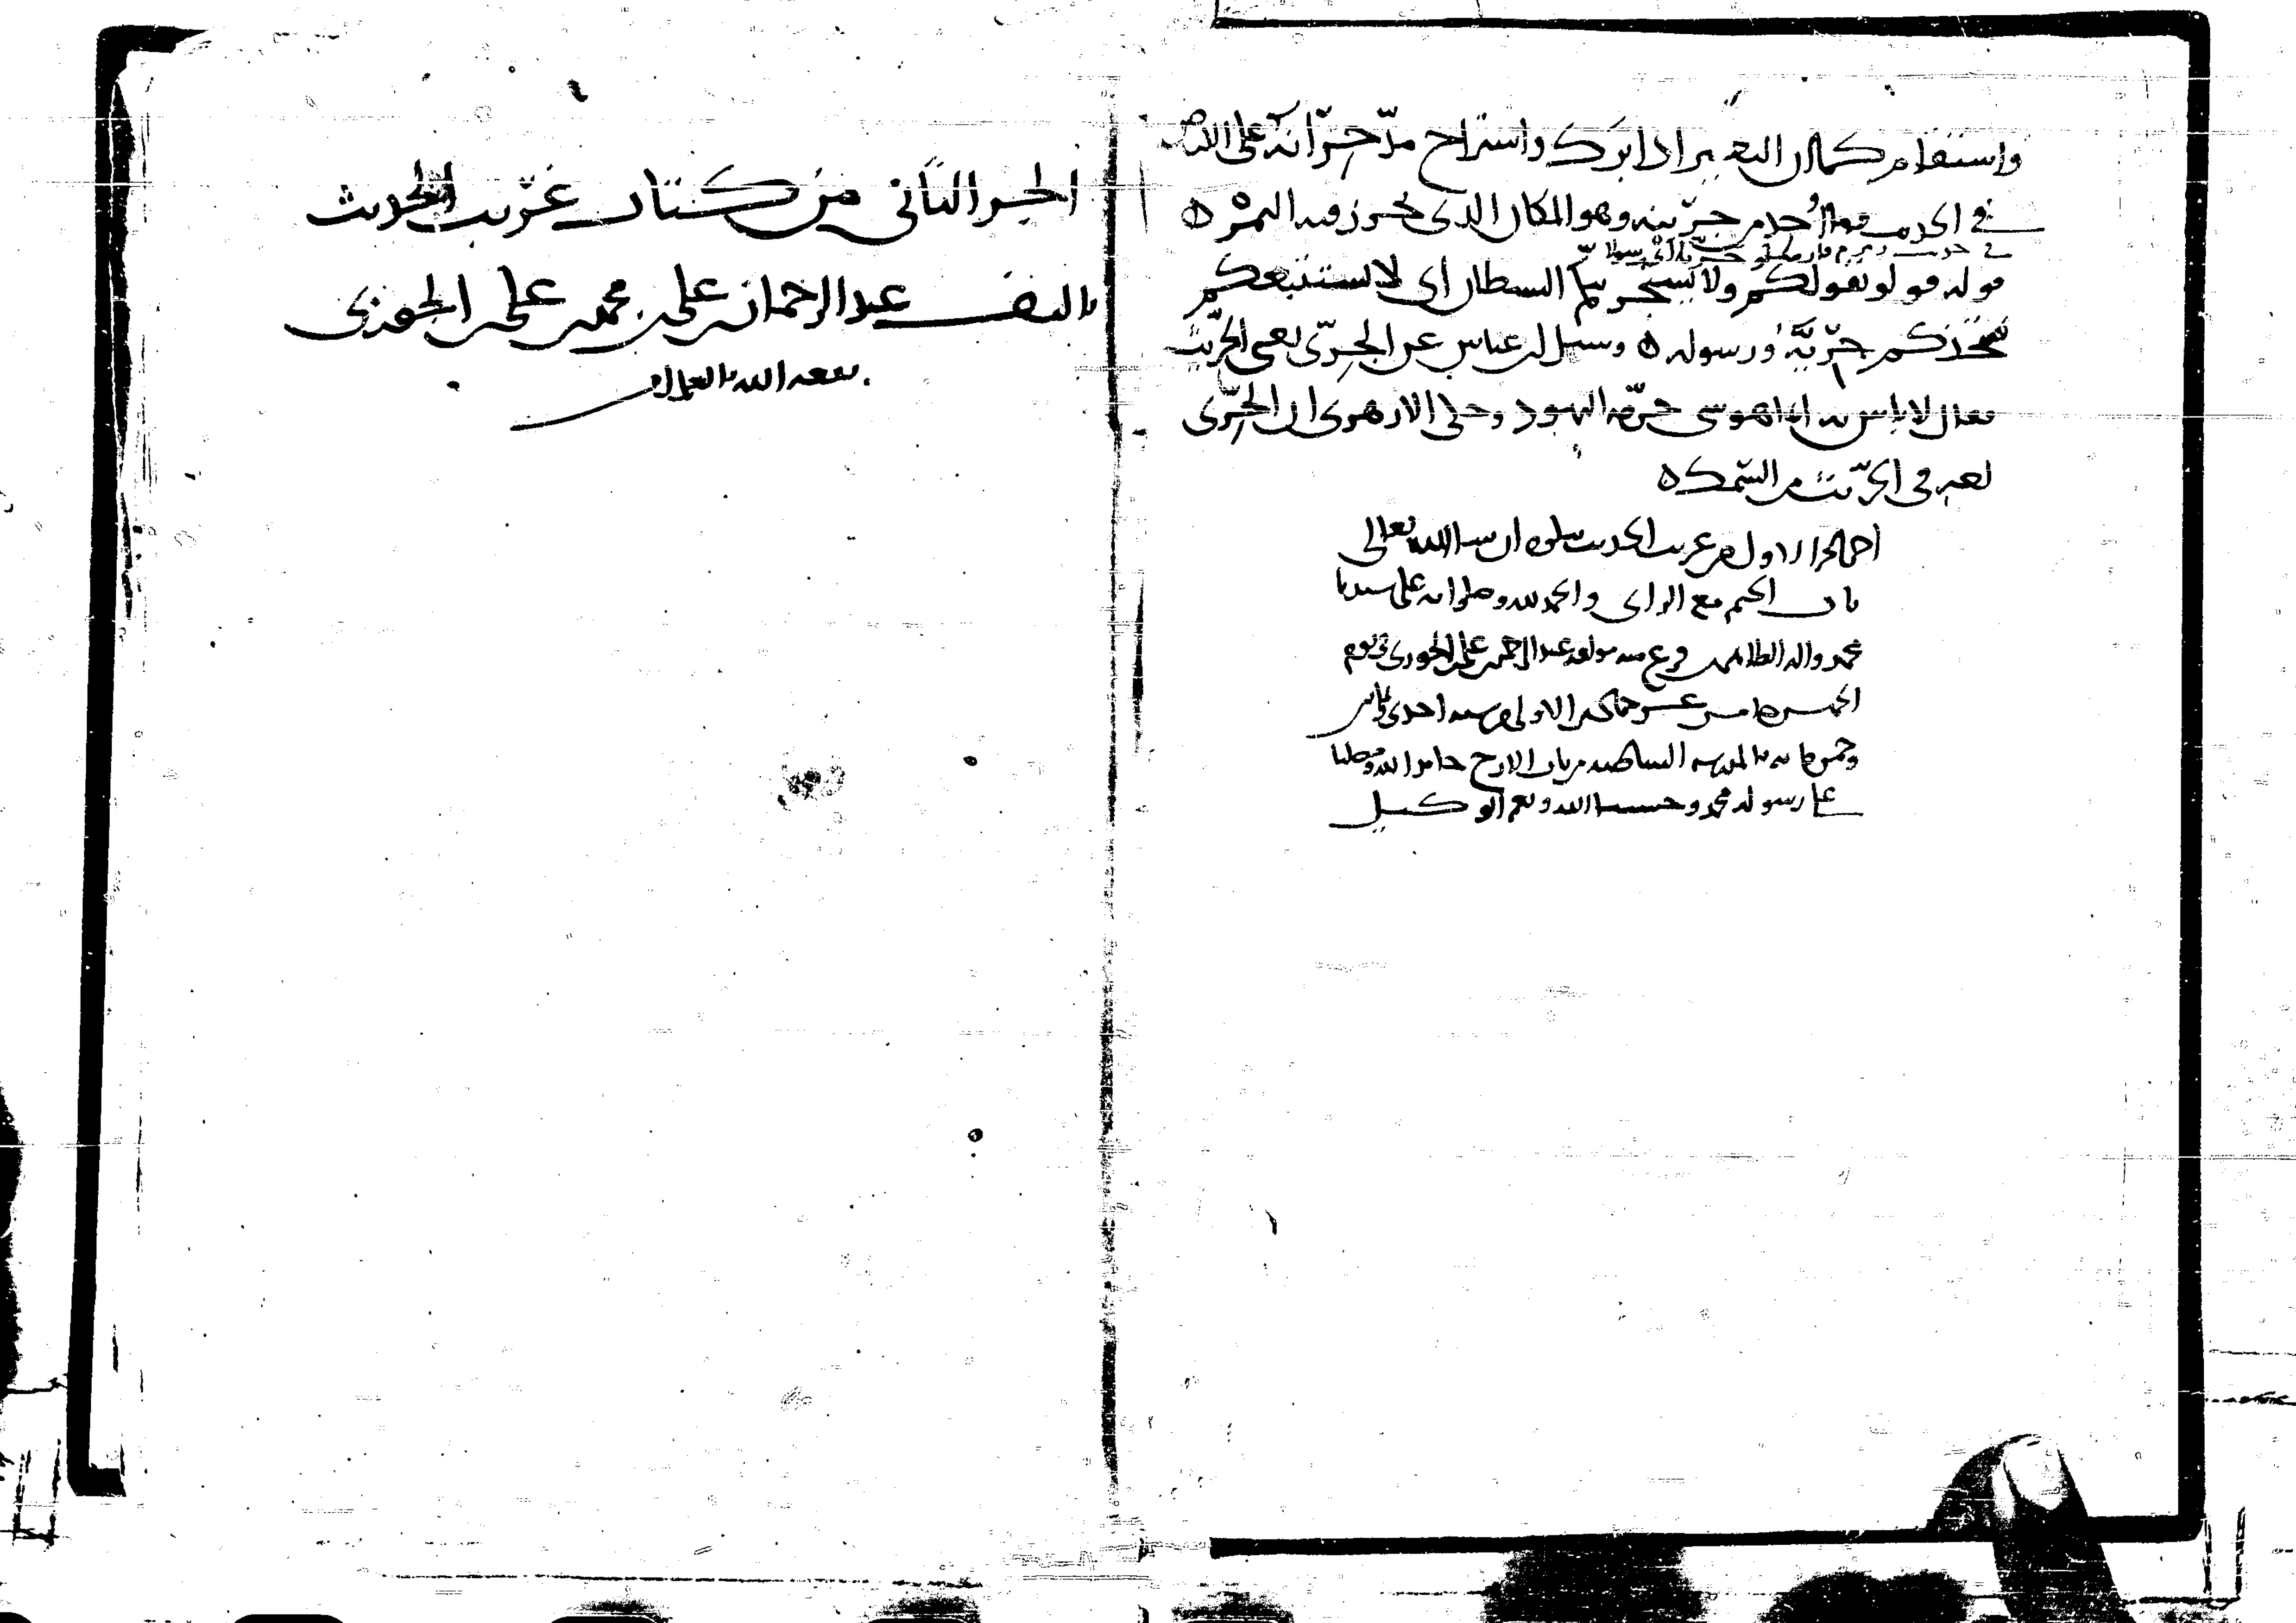 واستقام كما ان البعير اذا برك واستراح مد جرانه على الارض
في الحديث فقال احدهم جرينه وهو المكان الذي يحرز فيه التمر ه
قوله قولوا بقولكم ولا يستجرينكم الشيطان اي لا يستتبعكم
فيتخذكم جريه ورسوله ه وسئل ابن عباس عن الجري يعني الجريث
فقال لا باس به انما هو شي حرمه اليهود وحكى الازهري ان الجري
لغه في الجريث من السمك ه
اخر الجزء الاول من غريب الحديث يتلوه ان شا الله تعالى
باب الجيم مع الزاي والحمد لله وصلواته على سيدنا
محمد واله الطاهرين فرغ منه مولفه عبد الرحمن بن علي بن الجوزي في يوم
الخميس خامس عشر جمادى الاولى من سنه احدى وثمانين
وخمس مايه بالمدرسه الشاطبيه من باب الازج حامدا لله ومصليا
على رسوله محمد وحسبنا الله ونعم الوكيل
الجزء الثاني من كتاب غريب الحديث
تاليف عبد الرحمان بن علي بن محمد بن علي بن الجوزي
نفعه الله بالعلم